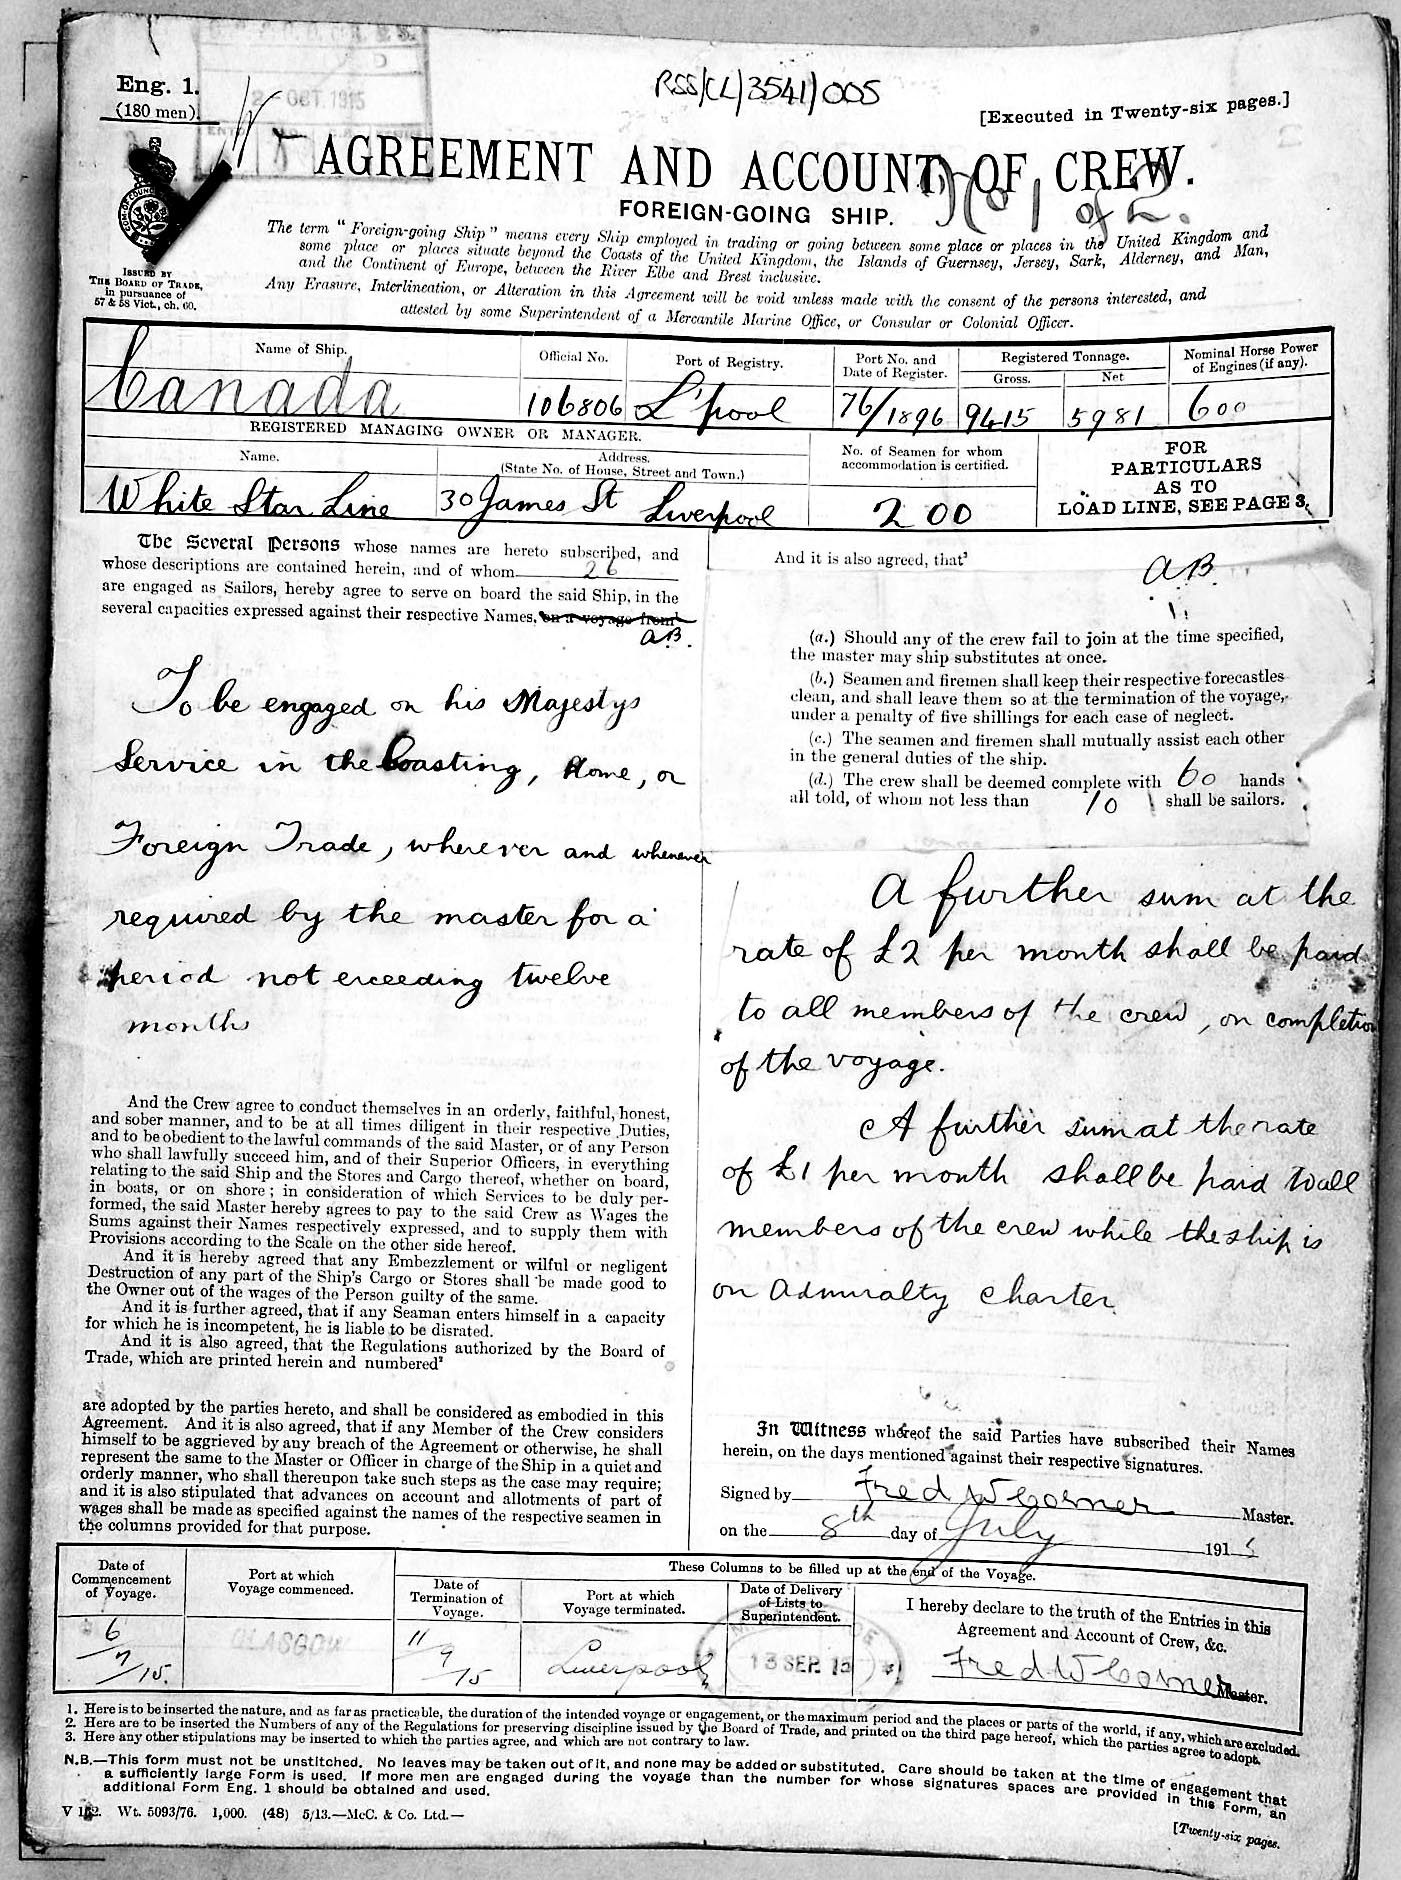 Eng. 1.
(180 men).
OCT. 1915
RSS/CL/3541/005
[Executed in Twenty-six pages.]
AGREEMENT AND ACCOUNT OF CREW.
No 1 of 2.
FOREIGN-GOING SHIP.
ISSUED BY
THE BOARD OF TRADE,
in pursuance of
57 & 58 Vict., ch. 60.
The term "Foreign-going Ship" means every Ship employed in trading or going between some place or places in the United Kingdom and
some place or places situate beyond the Coasts of the United Kingdom, the Islands of Guernsey, Jersey, Sark, Alderney, and Man,
and the Continent of Europe, between the River Elbe and Brest inclusive.
Any Erasure, Interlineation, or Alteration in this Agreement will be void unless made with the consent of the persons interested, and
attested by some Superintendent of a Mercantile Marine Office, or Consular or Colonial Officer.
Name of Ship. Official No. Port of Registry. Port No. and Date of Register. Registered Tonnage. Gross. Net Nominal Horse Power of Engines (if any).
Canada 106806 L'pool 76/1896 9415 5981 600
REGISTERED MANAGING OWNER OR MANAGER.
Name. Address. (State No. of House, Street and Town.) No. of Seamen for whom accommodation is certified.
White Star Line 30 James St Liverpool 200
FOR
PARTICULARS
AS TO
LOAD LINE, SEE PAGE 3.
The Several Persons whose names are hereto subscribed, and
whose descriptions are contained herein, and of whom 26
are engaged as Sailors, hereby agree to serve on board the said Ship, in the
several capacities expressed against their respective Names, on a voyage from
AB.
To be engaged on his Majestys
Service in the Coasting, Home, or
Foreign Trade, wherever and whenever
required by the master for a
period not exceeding twelve
months
And the Crew agree to conduct themselves in an orderly, faithful, honest,
and sober manner, and to be at all times diligent in their respective Duties,
and to be obedient to the lawful commands of the said Master, or of any Person
who shall lawfully succeed him, and of their Superior Officers, in everything
relating to the said Ship and the Stores and Cargo thereof, whether on board,
in boats, or on shore; in consideration of which Services to be duly per-
formed, the said Master hereby agrees to pay to the said Crew as Wages the
Sums against their Names respectively expressed, and to supply them with
Provisions according to the Scale on the other side hereof.
And it is hereby agreed that any Embezzlement or wilful or negligent
Destruction of any part of the Ship's Cargo or Stores shall be made good to
the Owner out of the wages of the Person guilty of the same.
And it is further agreed, that if any Seaman enters himself in a capacity
for which he is incompetent, he is liable to be disrated.
And it is also agreed, that the Regulations authorized by the Board of
Trade, which are printed herein and numbered²
are adopted by the parties hereto, and shall be considered as embodied in this
Agreement. And it is also agreed, that if any Member of the Crew considers
himself to be aggrieved by any breach of the Agreement or otherwise, he shall
represent the same to the Master or Officer in charge of the Ship in a quiet and
orderly manner, who shall thereupon take such steps as the case may require;
and it is also stipulated that advances on account and allotments of part of
wages shall be made as specified against the names of the respective seamen in
the columns provided for that purpose.
And it is also agreed, that³
AB.
(a.) Should any of the crew fail to join at the time specified,
the master may ship substitutes at once.
(b.) Seamen and firemen shall keep their respective forecastles
clean, and shall leave them so at the termination of the voyage,
under a penalty of five shillings for each case of neglect.
(c.) The seamen and firemen shall mutually assist each other
in the general duties of the ship.
(d.) The crew shall be deemed complete with 60 hands
all told, of whom not less than 10 shall be sailors.
A further sum at the
rate of £2 per month shall be paid
to all members of the crew, on completion
of the voyage.
A further sum at the rate
of £1 per month shall be paid to all
members of the crew while the ship is
on Admiralty Charter
In Witness whereof the said Parties have subscribed their Names
herein, on the days mentioned against their respective signatures.
Signed by Fred W Corner Master.
on the 8th day of July 1915
These Columns to be filled up at the end of the Voyage.
Date of Commencement of Voyage. Port at which Voyage commenced. Date of Termination of Voyage. Port at which Voyage terminated. Date of Delivery of Lists to Superintendent.
6/7/15. GLASGOW 11/9/15 Liverpool 13 SEP. 15
I hereby declare to the truth of the Entries in this
Agreement and Account of Crew, &c.
Fred W Corner Master.
1. Here is to be inserted the nature, and as far as practicable, the duration of the intended voyage or engagement, or the maximum period and the places or parts of the world, if any, which are excluded.
2. Here are to be inserted the Numbers of any of the Regulations for preserving discipline issued by the Board of Trade, and printed on the third page hereof, which the parties agree to adopt.
3. Here any other stipulations may be inserted to which the parties agree, and which are not contrary to law.
N.B.—This form must not be unstitched. No leaves may be taken out of it, and none may be added or substituted. Care should be taken at the time of engagement that
a sufficiently large Form is used. If more men are engaged during the voyage than the number for whose signatures spaces are provided in this Form, an
additional Form Eng. 1 should be obtained and used.
Wt. 5093/76. 1,000. (48) 5/13.—McC. & Co. Ltd.—
[Twenty-six pages.